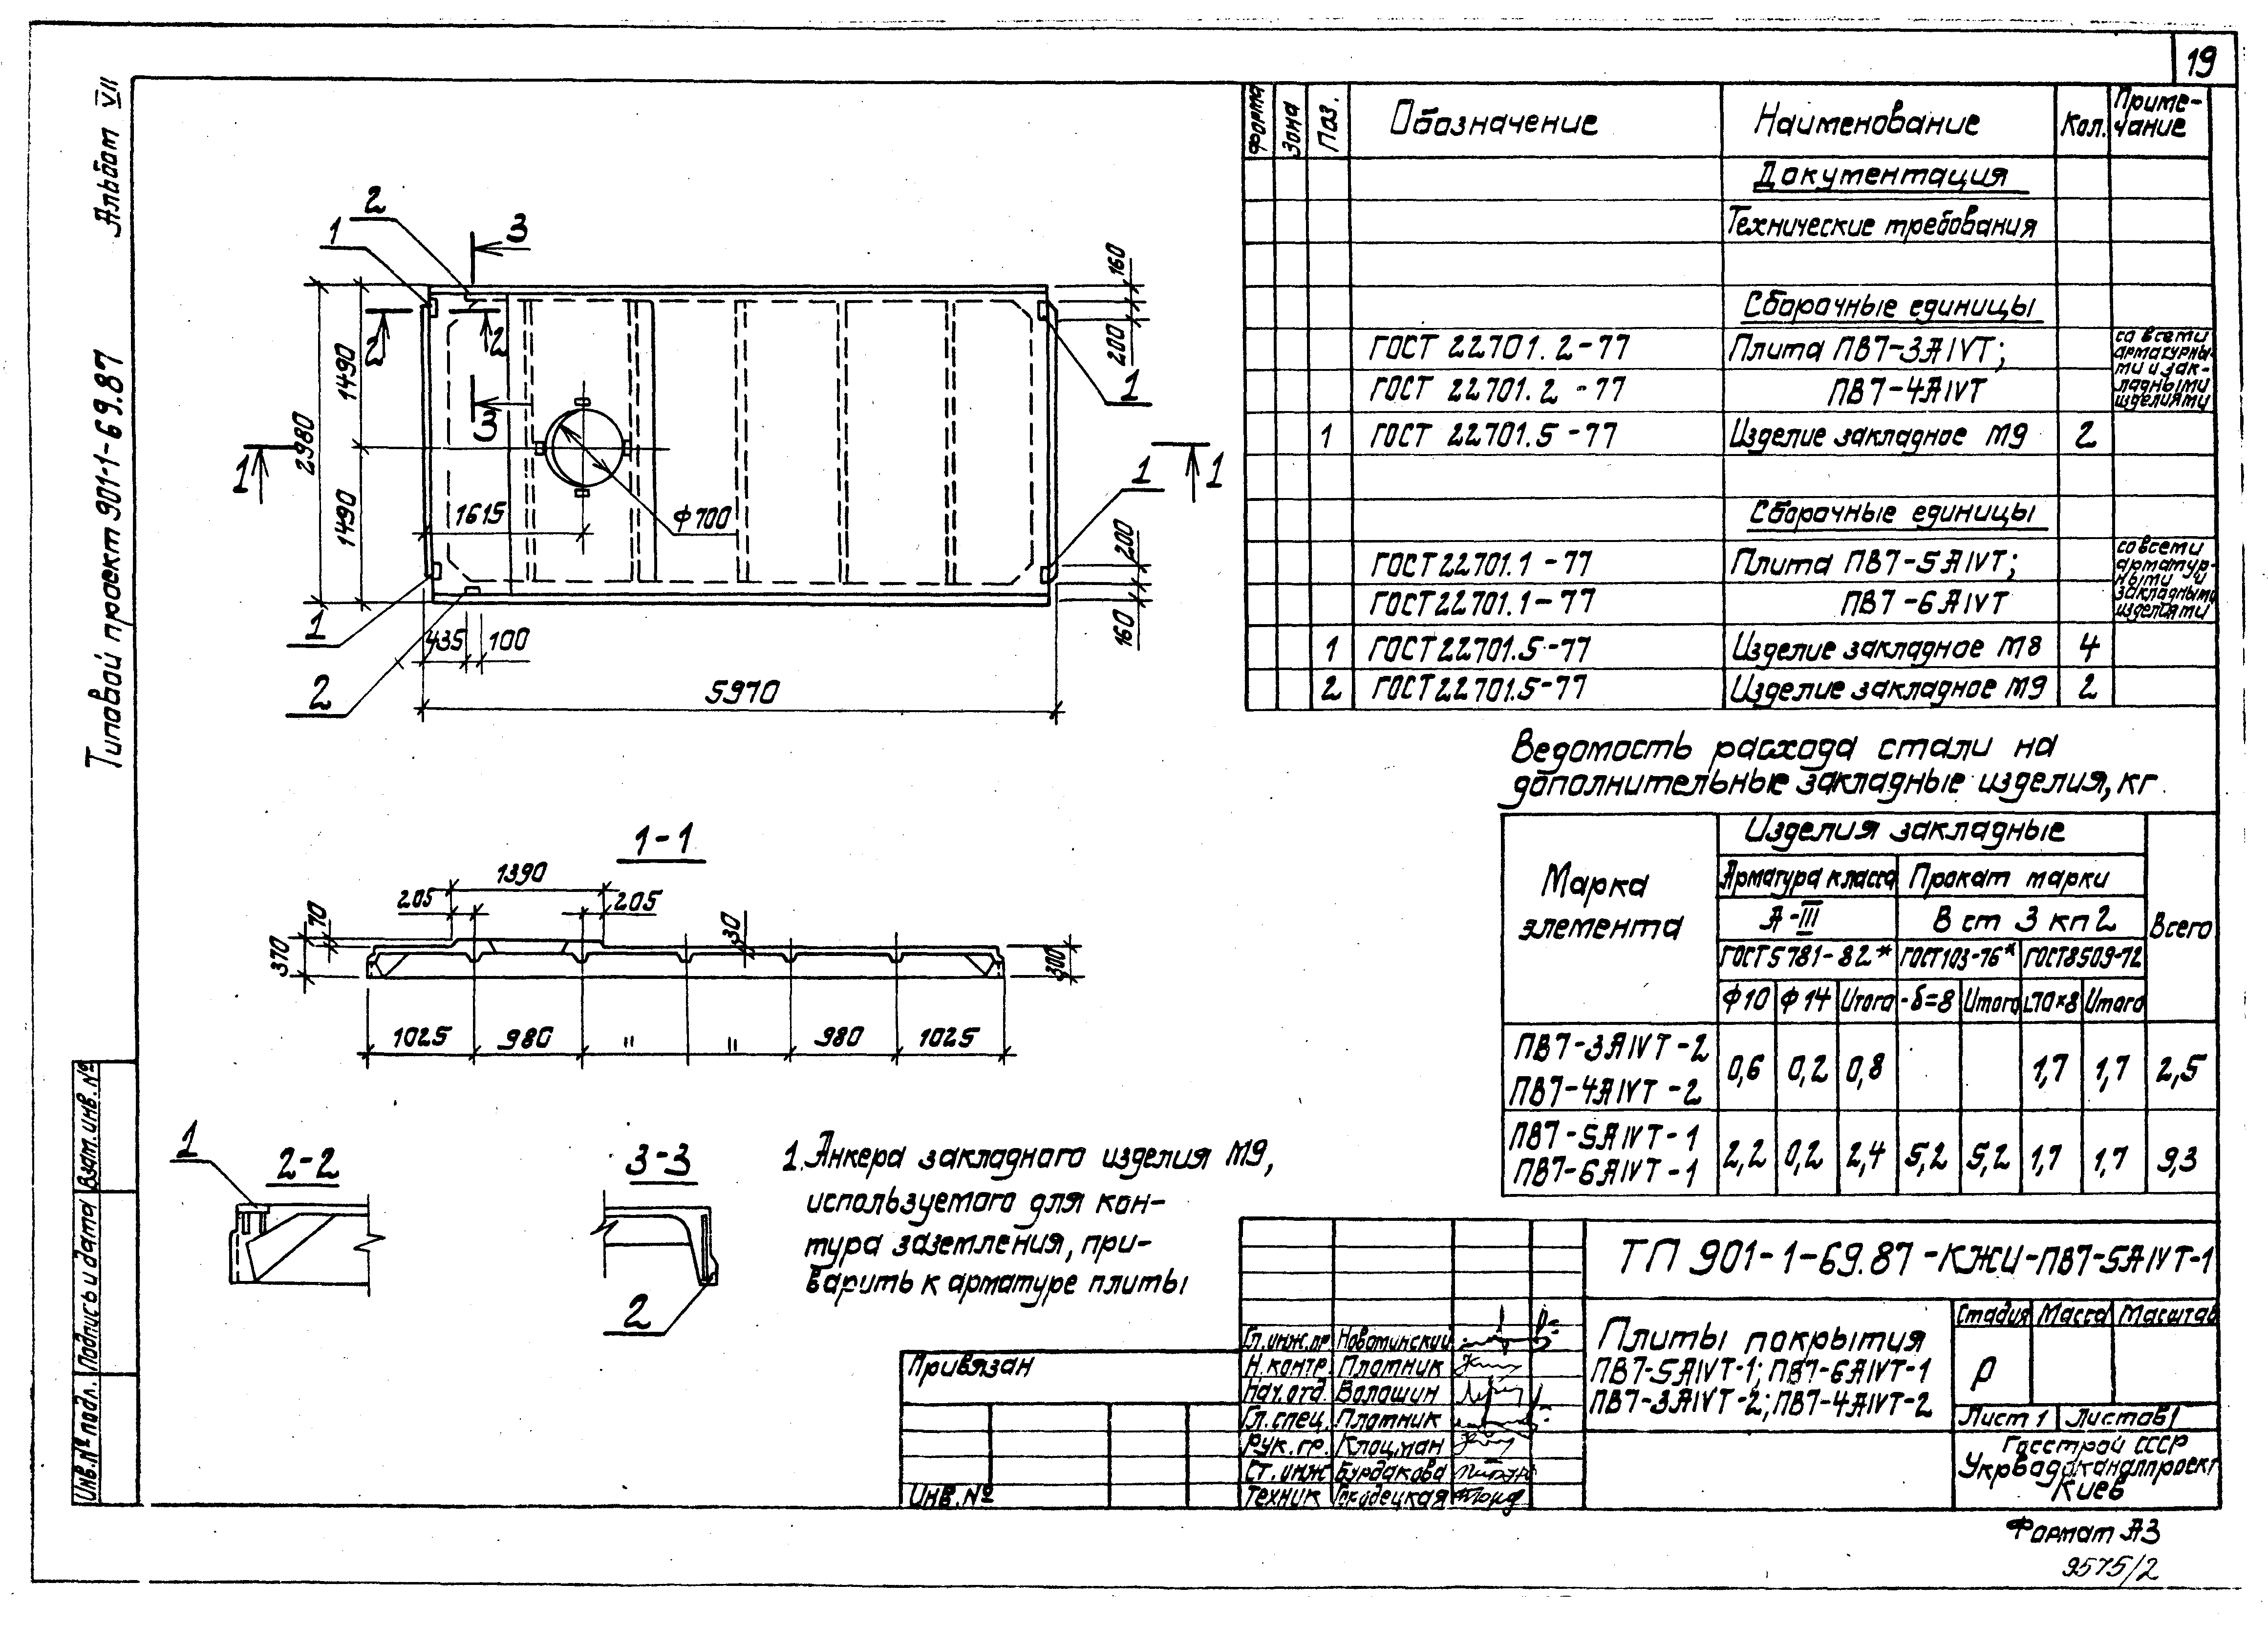 19
Альбом VII
Типовой проект 901-1-69.87
Взам. инв. №
Подпись и дата
Инв. № подл.
2
1
3
160
200
1490
2980
1490
2
2
3
1
1
1
1
1615
Ф700
200
160
1
2
435
100
5970
1-1
1390
205
205
70
370
30
300
1025
980
"
"
980
1025
1
2-2
3-3
2
1. Анкера закладного изделия М9,
используемого для кон-
тура заземления, при-
варить к арматуре плиты
Форма
Зона
Поз.
Обозначение
Наименование
Кол.
Приме-
чание
Документация
Технические требования
Сборочные единицы
ГОСТ 22701.2-77 Плита ПВ7-3АIVТ;
ГОСТ 22701.2-77 ПВ7-4АIVТ
со всеми
арматурны-
ми и зак-
ладными
изделиями
1 ГОСТ 22701.5-77 Изделие закладное М9 2
Сборочные единицы
ГОСТ 22701.1-77 Плита ПВ7-5АIVТ;
ГОСТ 22701.1-77 ПВ7-6АIVТ
со всеми
арматур-
ными и
закладными
изделиями
1 ГОСТ 22701.5-77 Изделие закладное М8 4
2 ГОСТ 22701.5-77 Изделие закладное М9 2
Ведомость расхода стали на
дополнительные закладные изделия, кг.
Марка
элемента
Изделия закладные
Всего
Арматура класса Прокат марки
А-III В ст 3 кп 2
ГОСТ 5781-82* ГОСТ 103-76* ГОСТ 8509-72
Ф10 Ф14 Итого -δ=8 Итого L70×8 Итого
ПВ7-3АIVТ-2
ПВ7-4АIVТ-2
0,6 0,2 0,8 1,7 1,7 2,5
ПВ7-5АIVТ-1
ПВ7-6АIVТ-1
2,2 0,2 2,4 5,2 5,2 1,7 1,7 9,3
ТП 901-1-69.87-КЖИ-ПВ7-5АIVТ-1
Плиты покрытия
ПВ7-5АIVТ-1; ПВ7-6АIVТ-1
ПВ7-3АIVТ-2; ПВ7-4АIVТ-2
Стадия Масса Масштаб
Р
Лист 1 Листов 1
Госстрой СССР
Укрводоканалпроект
Киев
Гл. инж. пр Новоминский
Н. контр. Плотник
Нач. отд. Волошин
Гл. спец. Плотник
Рук. гр. Клоцман
Ст. инж Бурдакова
Техник
Привязан
Инв. №
Формат А3
9575/2